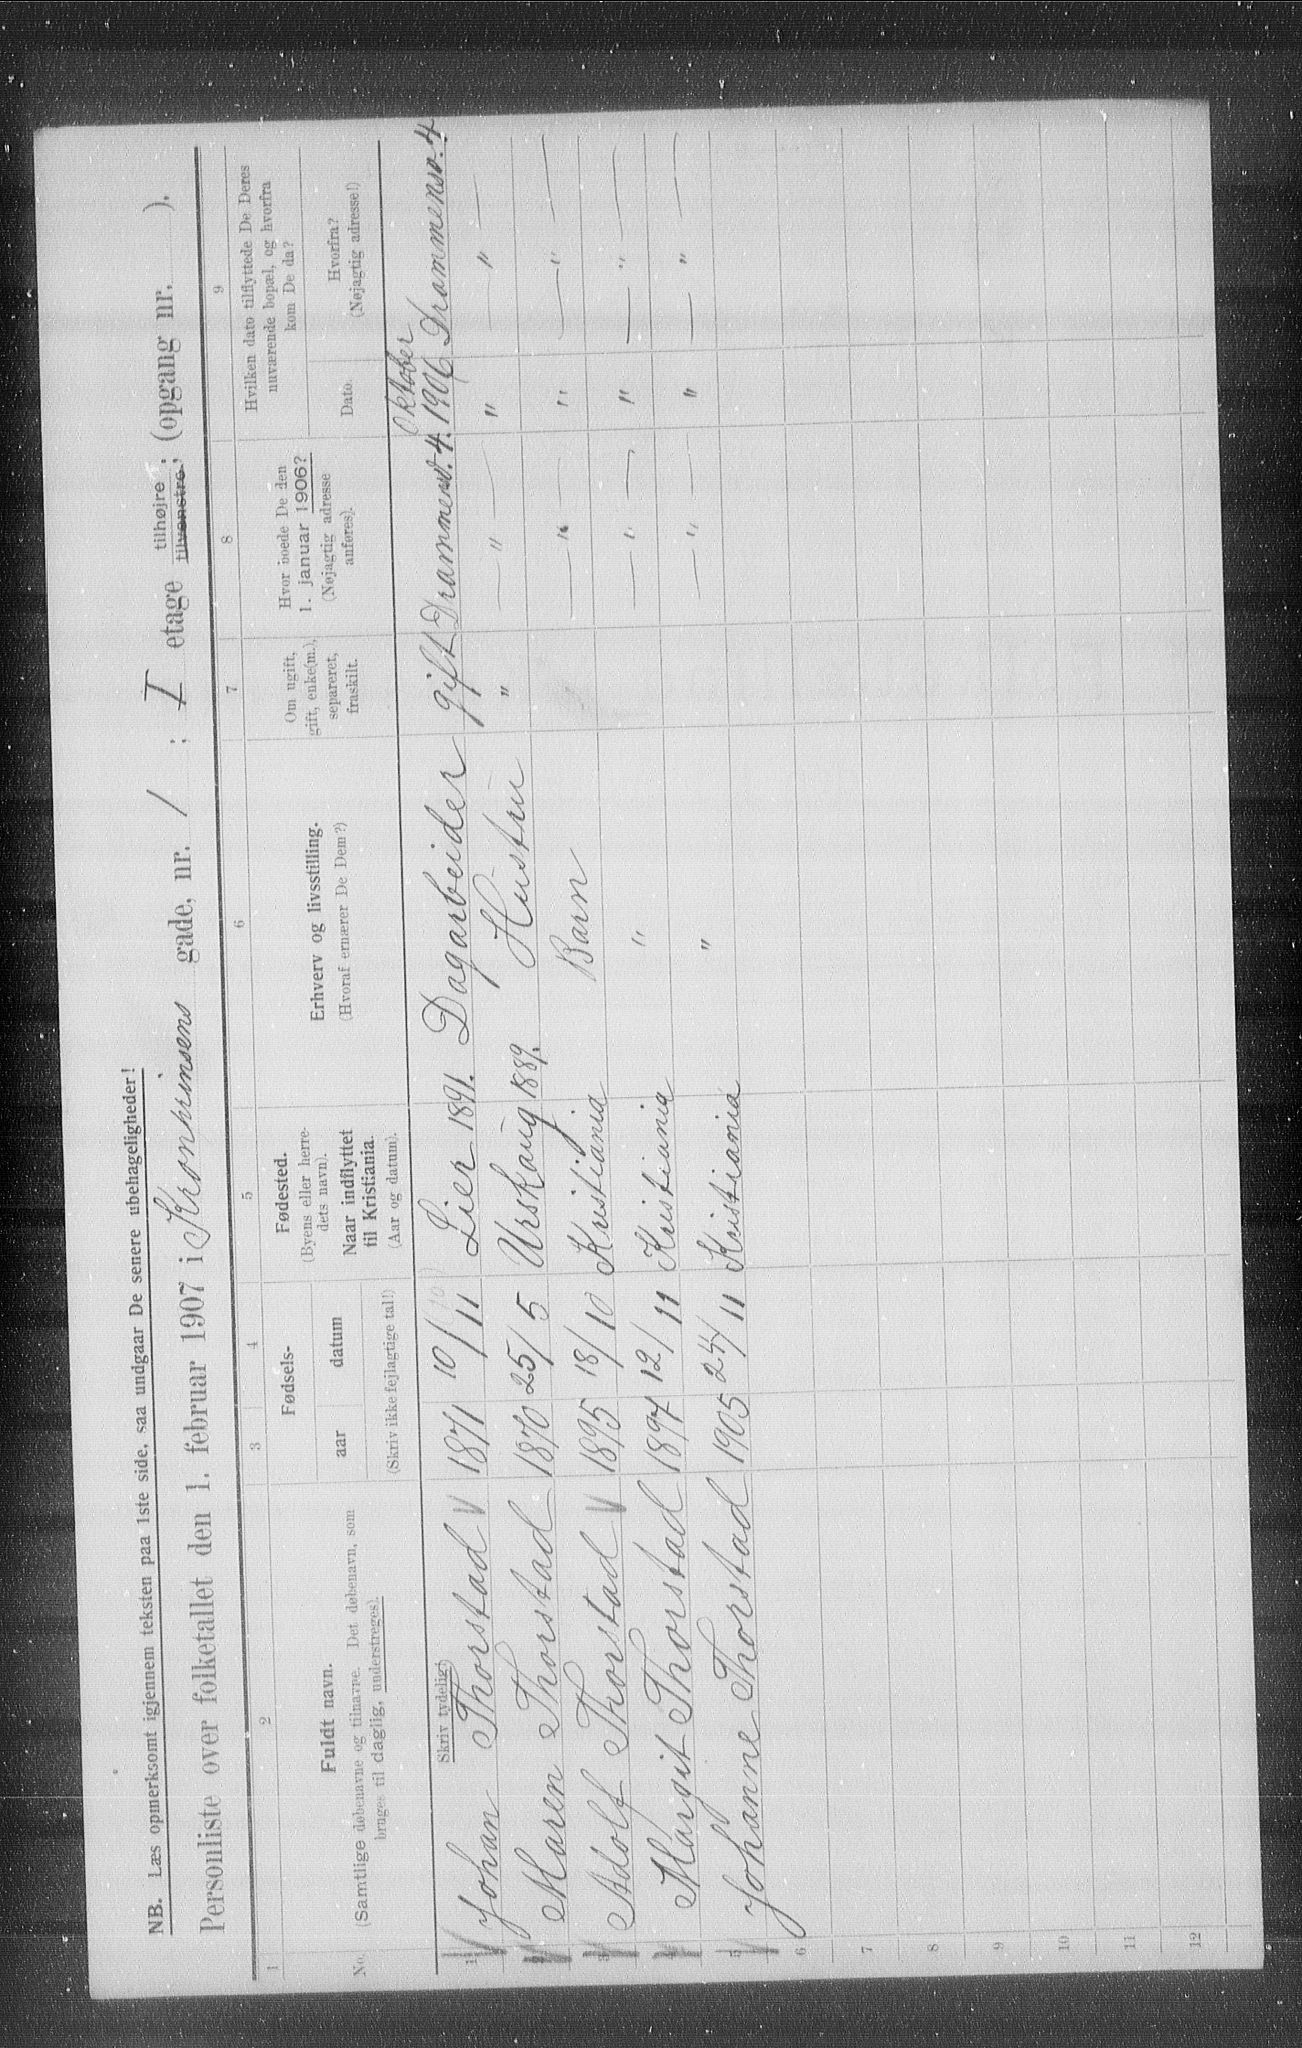 NB. Læs opmerksomt igjennem teksten paa 1ste side, saa undgaar De senere ubehageligheder!
Personliste over folketallet den 1. februar 1907 i Kronprinsens gade, nr. 1 ; I etage tilhøjre, tilvenstre, (opgang nr. ).
1 2 3 4 5 6 7 8 9
No.
Fuldt navn.
(Samtlige døbenavne og tilnavne. Det døbenavn, som
bruges til daglig, understreges).
Fødsels-
aar datum
(Skriv ikke fejlagtige tal!)
Fødested.
(Byens eller herre-
dets navn).
Naar indflyttet
til Kristiania.
(Aar og datum).
Erhverv og livsstilling.
(Hvoraf ernærer De Dem?)
Om ugift,
gift, enke(m.),
separeret,
fraskilt.
Hvor boede De den
1. januar 1906?
(Nøjagtig adresse
anføres).
Hvilken dato tilflyttede De Deres
nuværende bopæl, og hvorfra
kom De da?
Dato.
Hvorfra?
(Nøjagtig adresse!)
Skriv tydelig!
Oktober
1 Johan Thorstad 1871 10/11 Lier 1891. Dagarbeider gift Drammensv. 4. 1906 Drammensv. 4
2 Maren Thorstad 1870 25/5 Urskaug 1889. Hustru " — " — " — " —
3 Adolf Thorstad 1895 18/10 Kristiania Barn — " — " — " —
4 Margit Thorstad 1897 12/11 Kristiania " — " — " — " —
5 Johanne Thorstad 1905 24/11 Kristiania " — " — " — " —
6
7
8
9
10
11
12